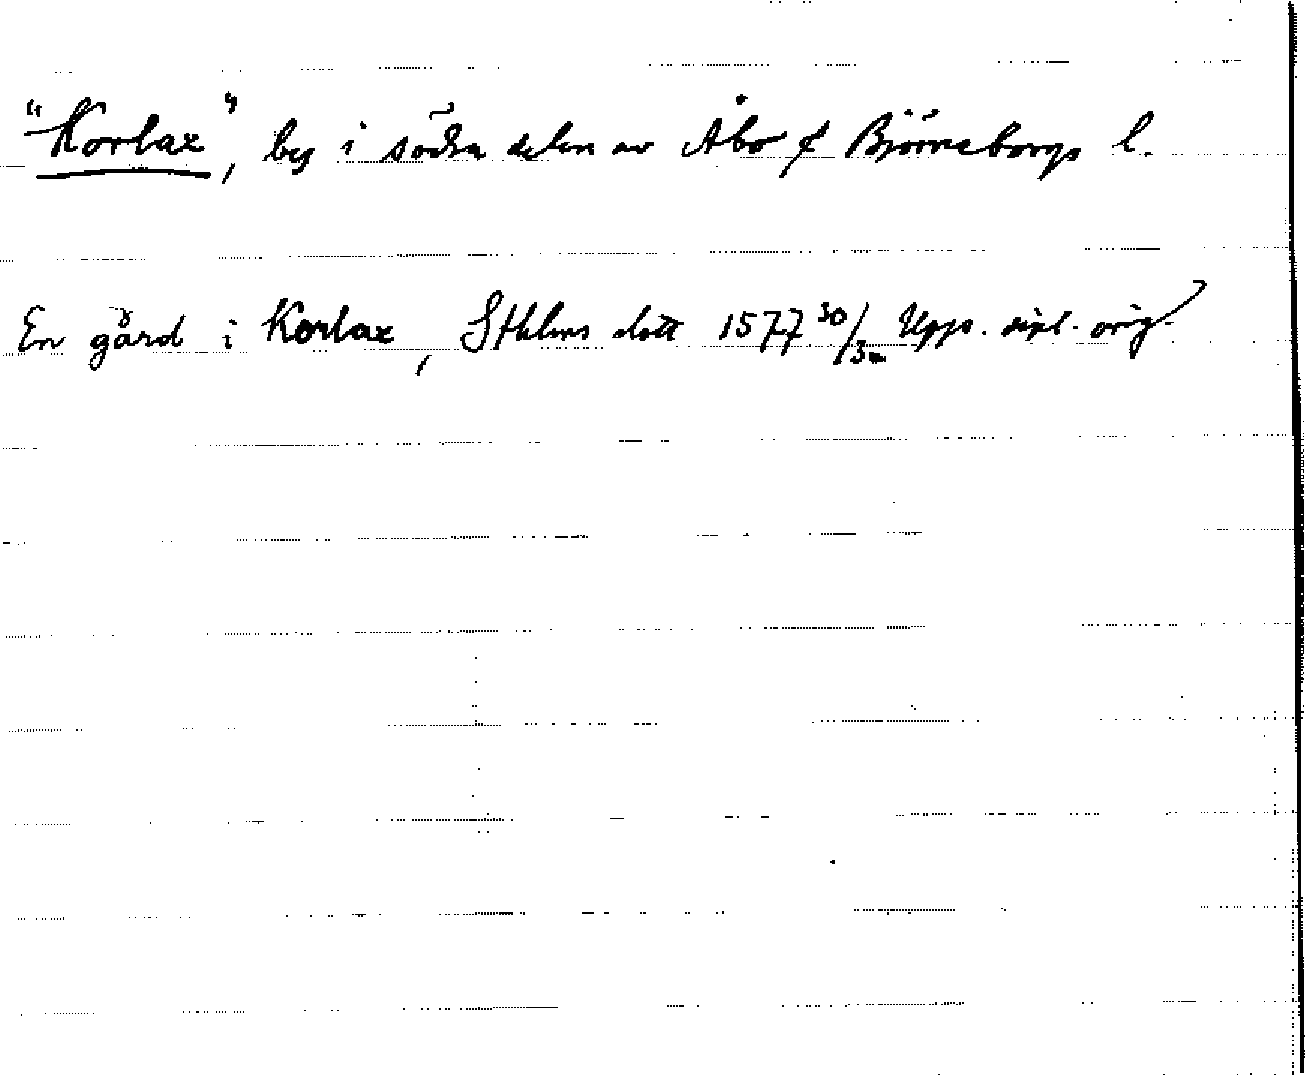 "Korlax", by i södra delen av Åbo & Björneborgs l.
En gård i Korlax, Sthlms slott 1577 30/3 Upps. dipl. orig.